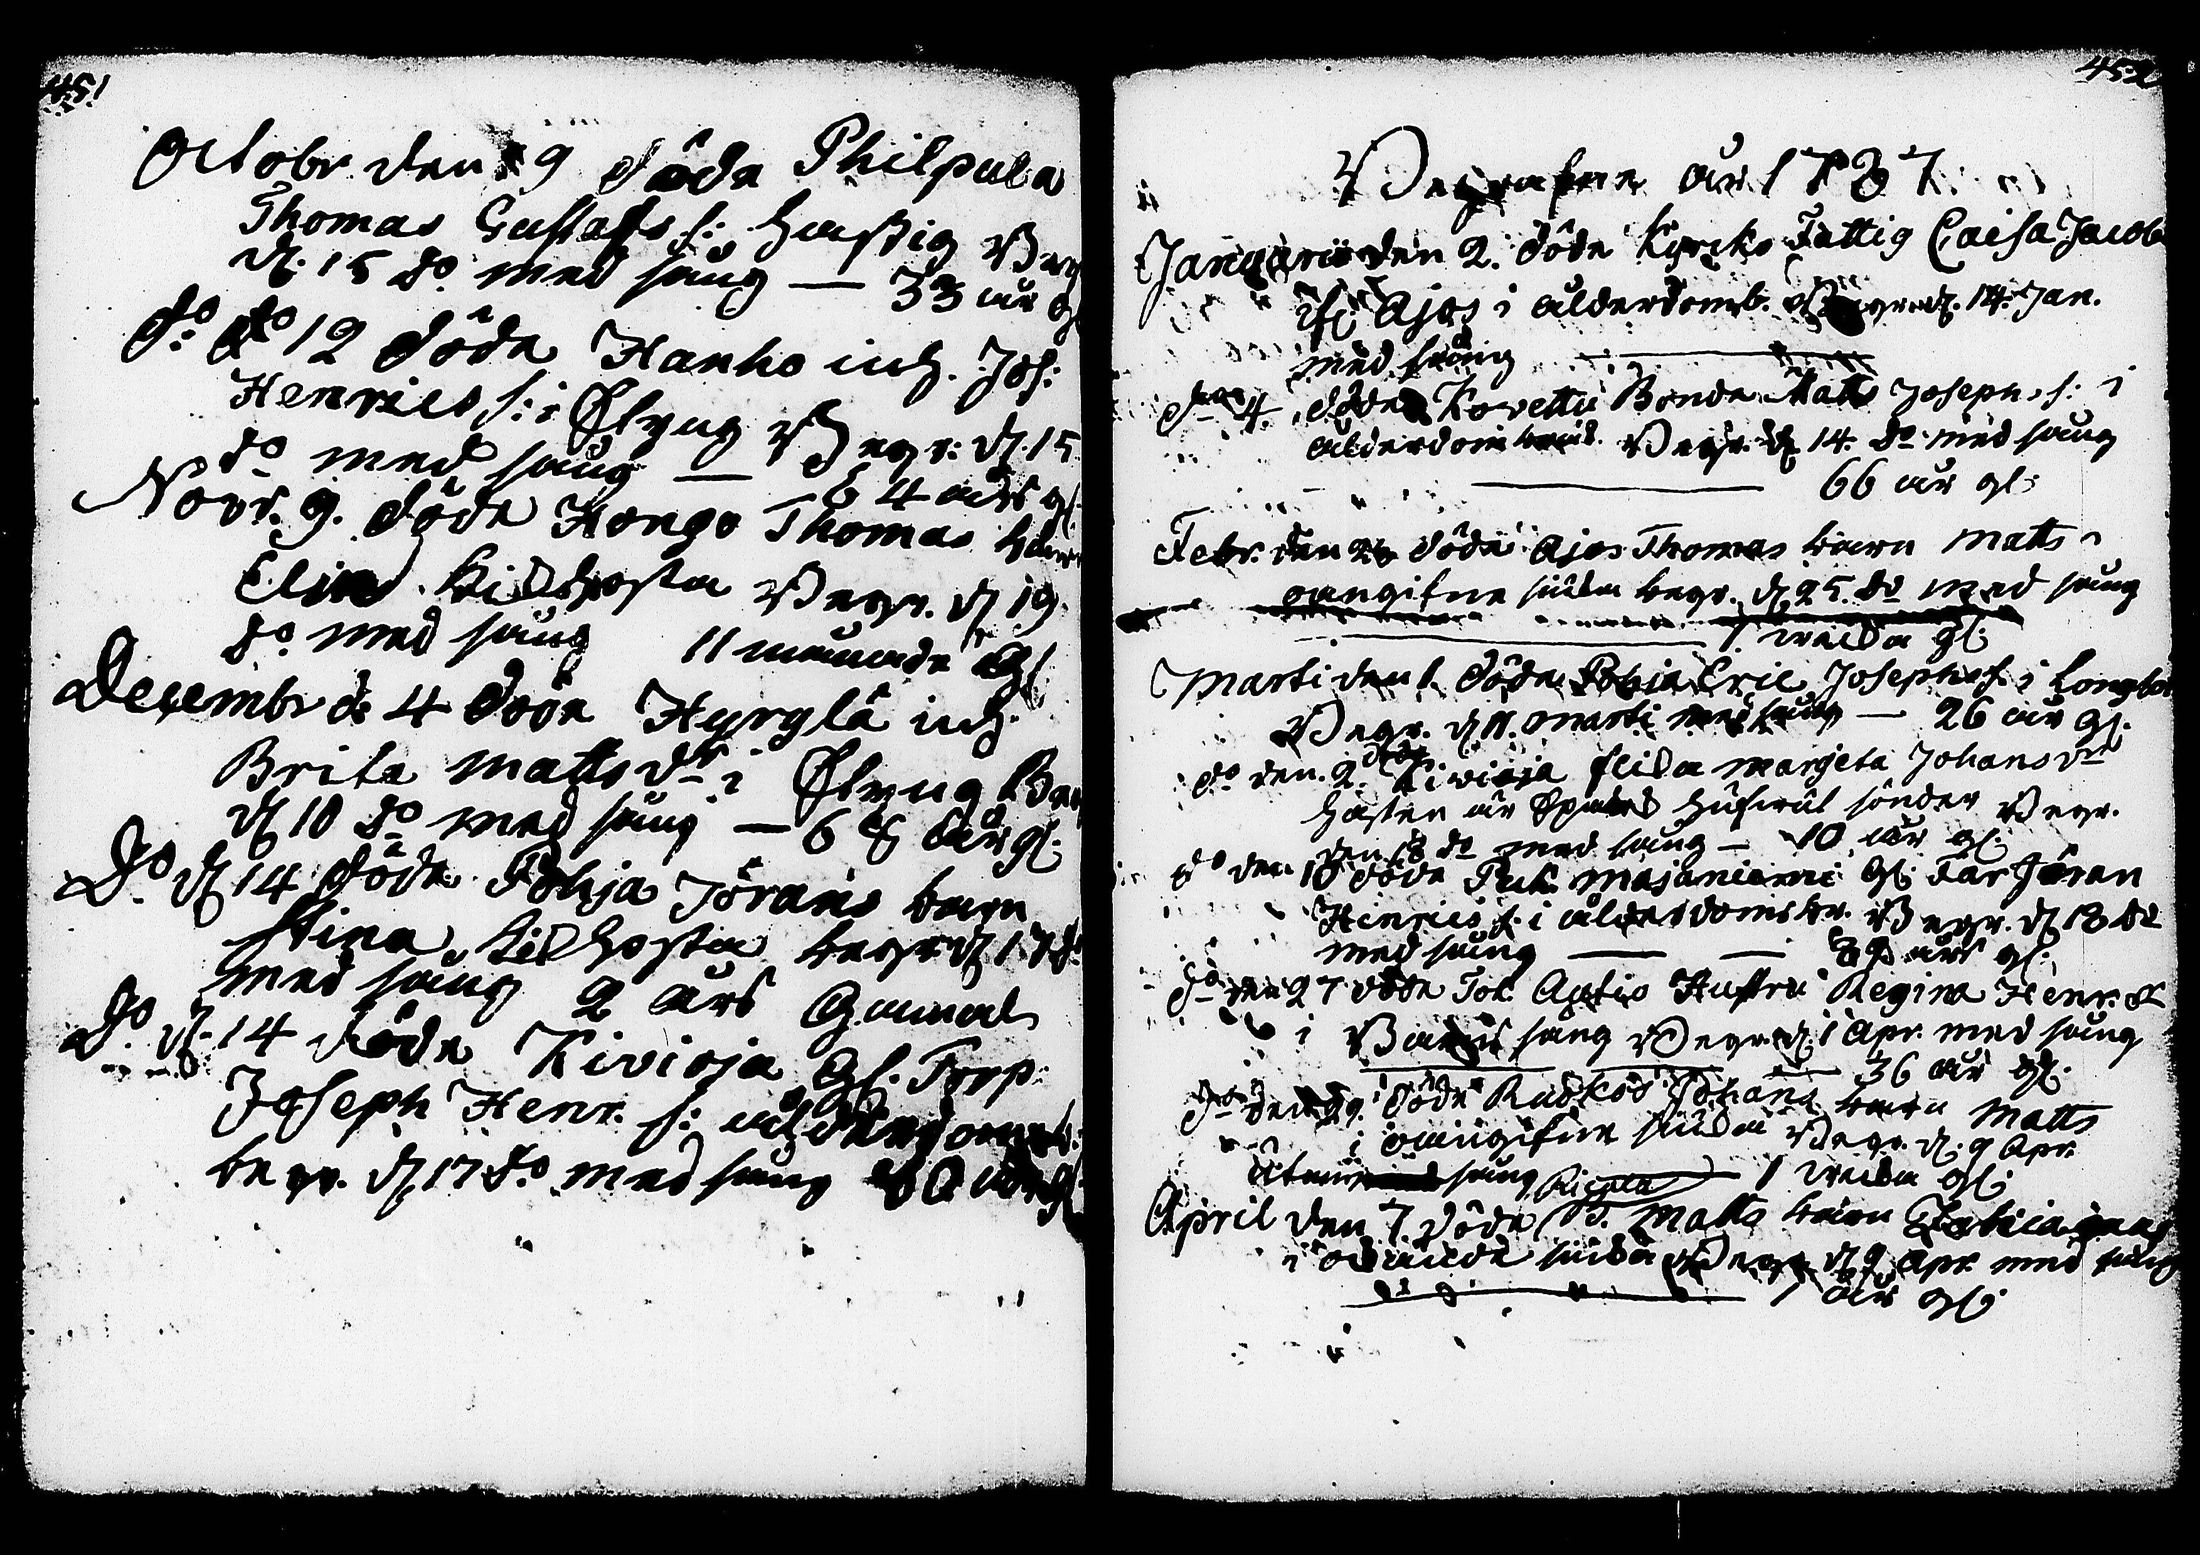 451
Octobr den 9 döde Philpula
Thomas Gustafs s: hastig Beg
d. 15 do med sång — 33 år gl
do do 12 döde Hanho inh. Jos:
Henrics s: i Flygng Begr: d. 15
do med sång — 64 års gl
Novr. 9. döde Hongo Thomas barn
Elin Kikhosta Begr. d. 19.
do med sång 11 månader gl.
Decembr d. 4 döde Hyrglä inh.
Brita Matts dr i Flygng Beg
d 10 do med sång — 68 år gl.
Do d 14 döde Pohja Jörans barn
Stina Kikhosta begr d 17 do
med sång 2 års Gammal
Do d. 14 döde Kivioja Gl. Torp:
Joseph Henr. s: ålderdomsb.
begr. d 17 do med sång 80 år gl.
452
Begrafne år 1787.
Januari den 2. döde Kyrko Fattig Caisa Jacobs
Ajos i ålderdomb. Begr. d. 14. Jan.
med sång
do 4. döde Kovettu Bonde Matts Josephs s: i
ålderdom Begr. d 14. do med sång
66 år gl.
Febr. den döde Ajos Thomas barn Matts
oangifne sjuka begr. d 25. do med sång
1 vecka gl.
Marti den 1. döde Pohja Eric Josephs s. i Longbot
Begr. d 11. Marti med sång — 26 år gl.
do den. 9 döde Kivioja flicka Margeta Johans dr
hästen hufvud sönder Begr.
den 18 do med sång — 10 år gl.
do den 10 döde Majaniemi gl. Far Jöran
Hinrics s. i ålderdomsbr. Begr. d 18 do
med sång — — års gl.
do den 27 döde Joh. Hustru Regina Henr. dr
i Barns säng Begr. d. 1 Apr. med sång
36 år gl.
do den 29. döde Ruskos Johans barn Matts
i oangifne sjuka Begr. d. 9 Apr.
Utan sång 1 vecka gl.
April den 7. döde Matts barn
i okände sjuka Begr. d 9 Apr. med sång
1 år gl.